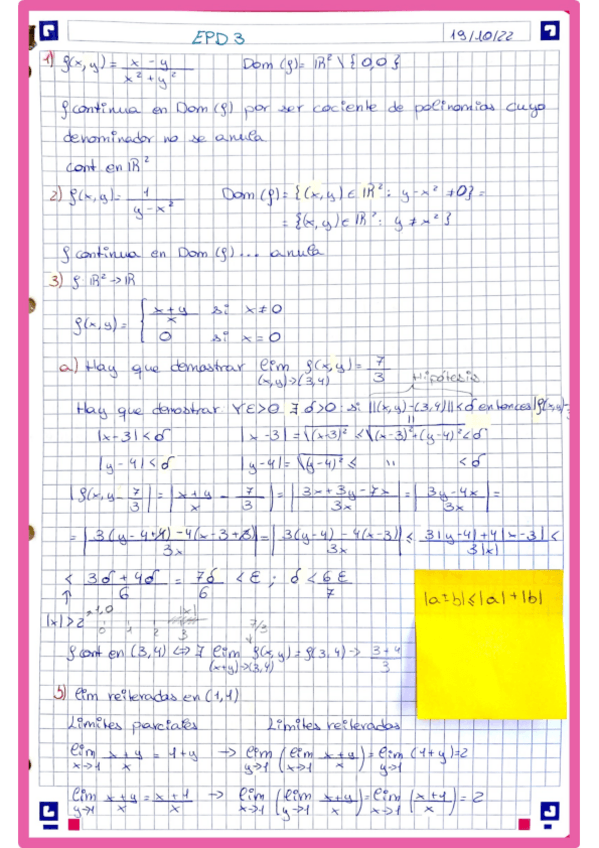 EPD 3
19/10/22
1) f(x,y) = x-y / x²+y²   Dom(f) = ℝ² \ {0,0}
f continua en Dom(f) por ser cociente de polinomios cuyo
denominador no se anula
cont en ℝ²
2) f(x,y) = 1 / y-x²   Dom(f) = {(x,y) ∈ ℝ² : y-x² ≠ 0} =
= {(x,y) ∈ ℝ² : y ≠ x²}
f continua en Dom(f)... anula
3) f ℝ² → ℝ
f(x,y) = { x+y / x   si x≠0
0   si x=0
a) Hay que demostrar lim (x,y)→(3,4) f(x,y) = 7/3
Hipótesis
Hay que demostrar ∀ε>0 ∃ δ>0 : si ||(x,y)-(3,4)|| < δ entonces |f(x,y)-
|x-3| < δ   |x-3| = √(x-3)² ≤ √(x-3)²+(y-4)² < δ
|y-4| < δ   |y-4| = √(y-4)² ≤ " < δ
|f(x,y - 7/3| = |x+y / x - 7/3| = |3x+3y-7x / 3x| = |3y-4x / 3x| =
= |3(y-4+4)-4(x-3+3) / 3x| = |3(y-4)-4(x-3) / 3x| ≤ 3|y-4|+4|x-3| / 3|x| <
< 3δ+4δ / 6 = 7δ / 6 < ε ; δ < 6ε / 7
|a±b| ≤ |a|+|b|
|x| > 2   1,0   |x|
0 1 2 3   7/3
f cont en (3,4) ⇔ ∃ lim (x+y)→(3,4) f(x,y) = f(3,4) → 3+4 / 3
5) lim reiteradas en (1,1)
Límites parciales   Límites reiterados
lim x→1 x+y / x = 1+y → lim y→1 (lim x→1 x+y / x) = lim y→1 (1+y) = 2
lim y→1 x+y / x = x+1 / x → lim x→1 (lim y→1 x+y / x) = lim x→1 (x+1 / x) = 2